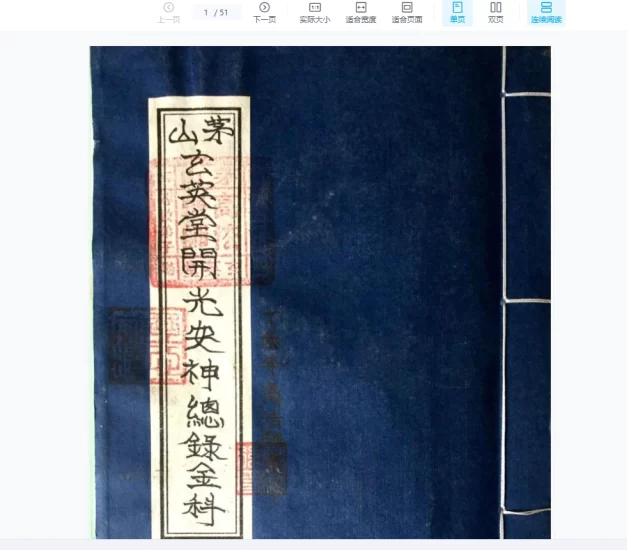 上一页
1 / 51
下一页
实际大小
适合宽度
适合页面
单页
双页
连续阅读
茅山玄英堂開光安神總錄金科